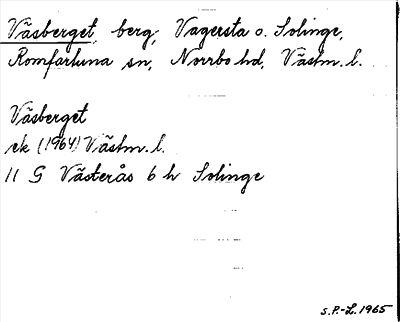 Väsberget, berg, Vagersta o. Solinge,
Romfartuna sn, Norrbo hd, Västm. l.
Väsberget
ek (1964) Västm. l.
11 G Västerås 6 h Solinge
S.P.-L. 1965